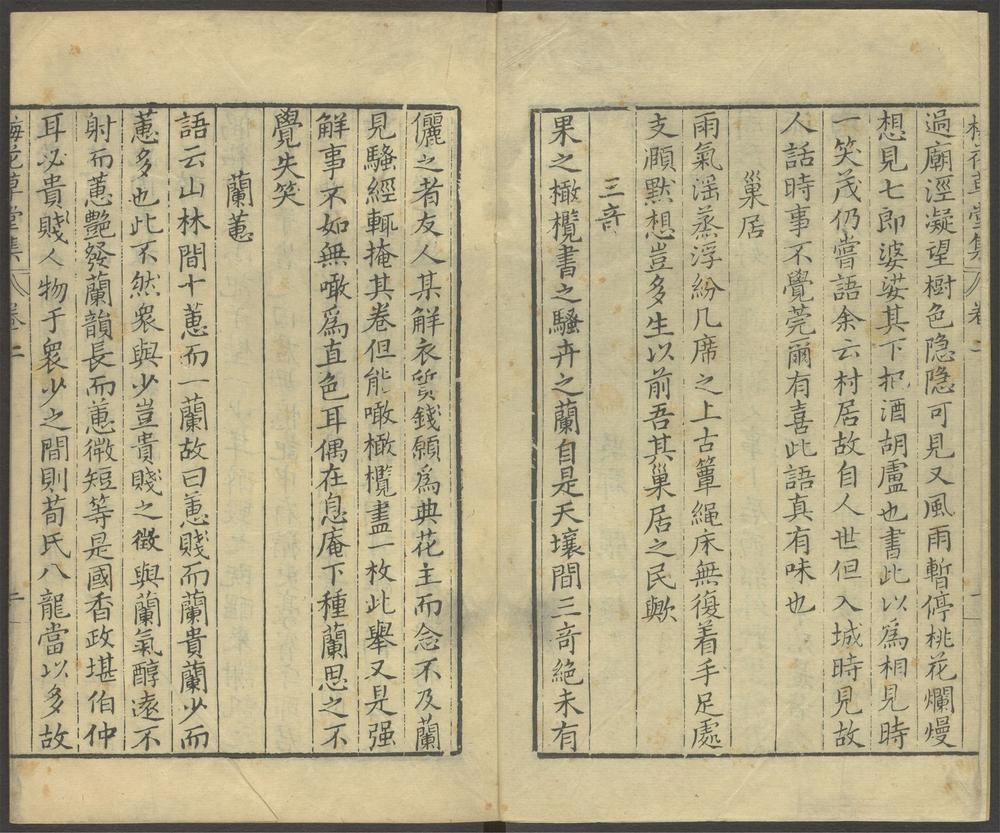 過廟涇凝望樹色隐隐可見又風雨暫停桃花爛熳
想見七即婆娑其下把酒胡盧也書此以爲相見時
一笑茂仍嘗語余云村居故自人世但入城時見故
人話時事不覺莞爾有喜此語真有味也
巢居
雨氣滛蒸浮紛几席之上古簟繩床無復着手足處
支頤默想豈多生以前吾其巢居之民歟
三竒
果之橄欖書之騷卉之蘭自是天壤間三竒絶未有
儷之者友人某解衣質錢願爲典花主而念不及蘭
見騷經輒掩其卷但能噉橄欖盡一枚此舉又是强
解事不如無噉爲直色耳偶在息庵下種蘭思之不
覺失笑
蘭蕙
語云山林間十蕙而一蘭故曰蕙賤而蘭貴蘭少而
蕙多也此不然衆與少豈貴賤之徵與蘭氣醇遠不
射而蕙艷發蘭韻長而蕙微短等是國香政堪伯仲
耳必貴賤人物于衆少之間則荀氏八龍當以多故
草堂集 卷二